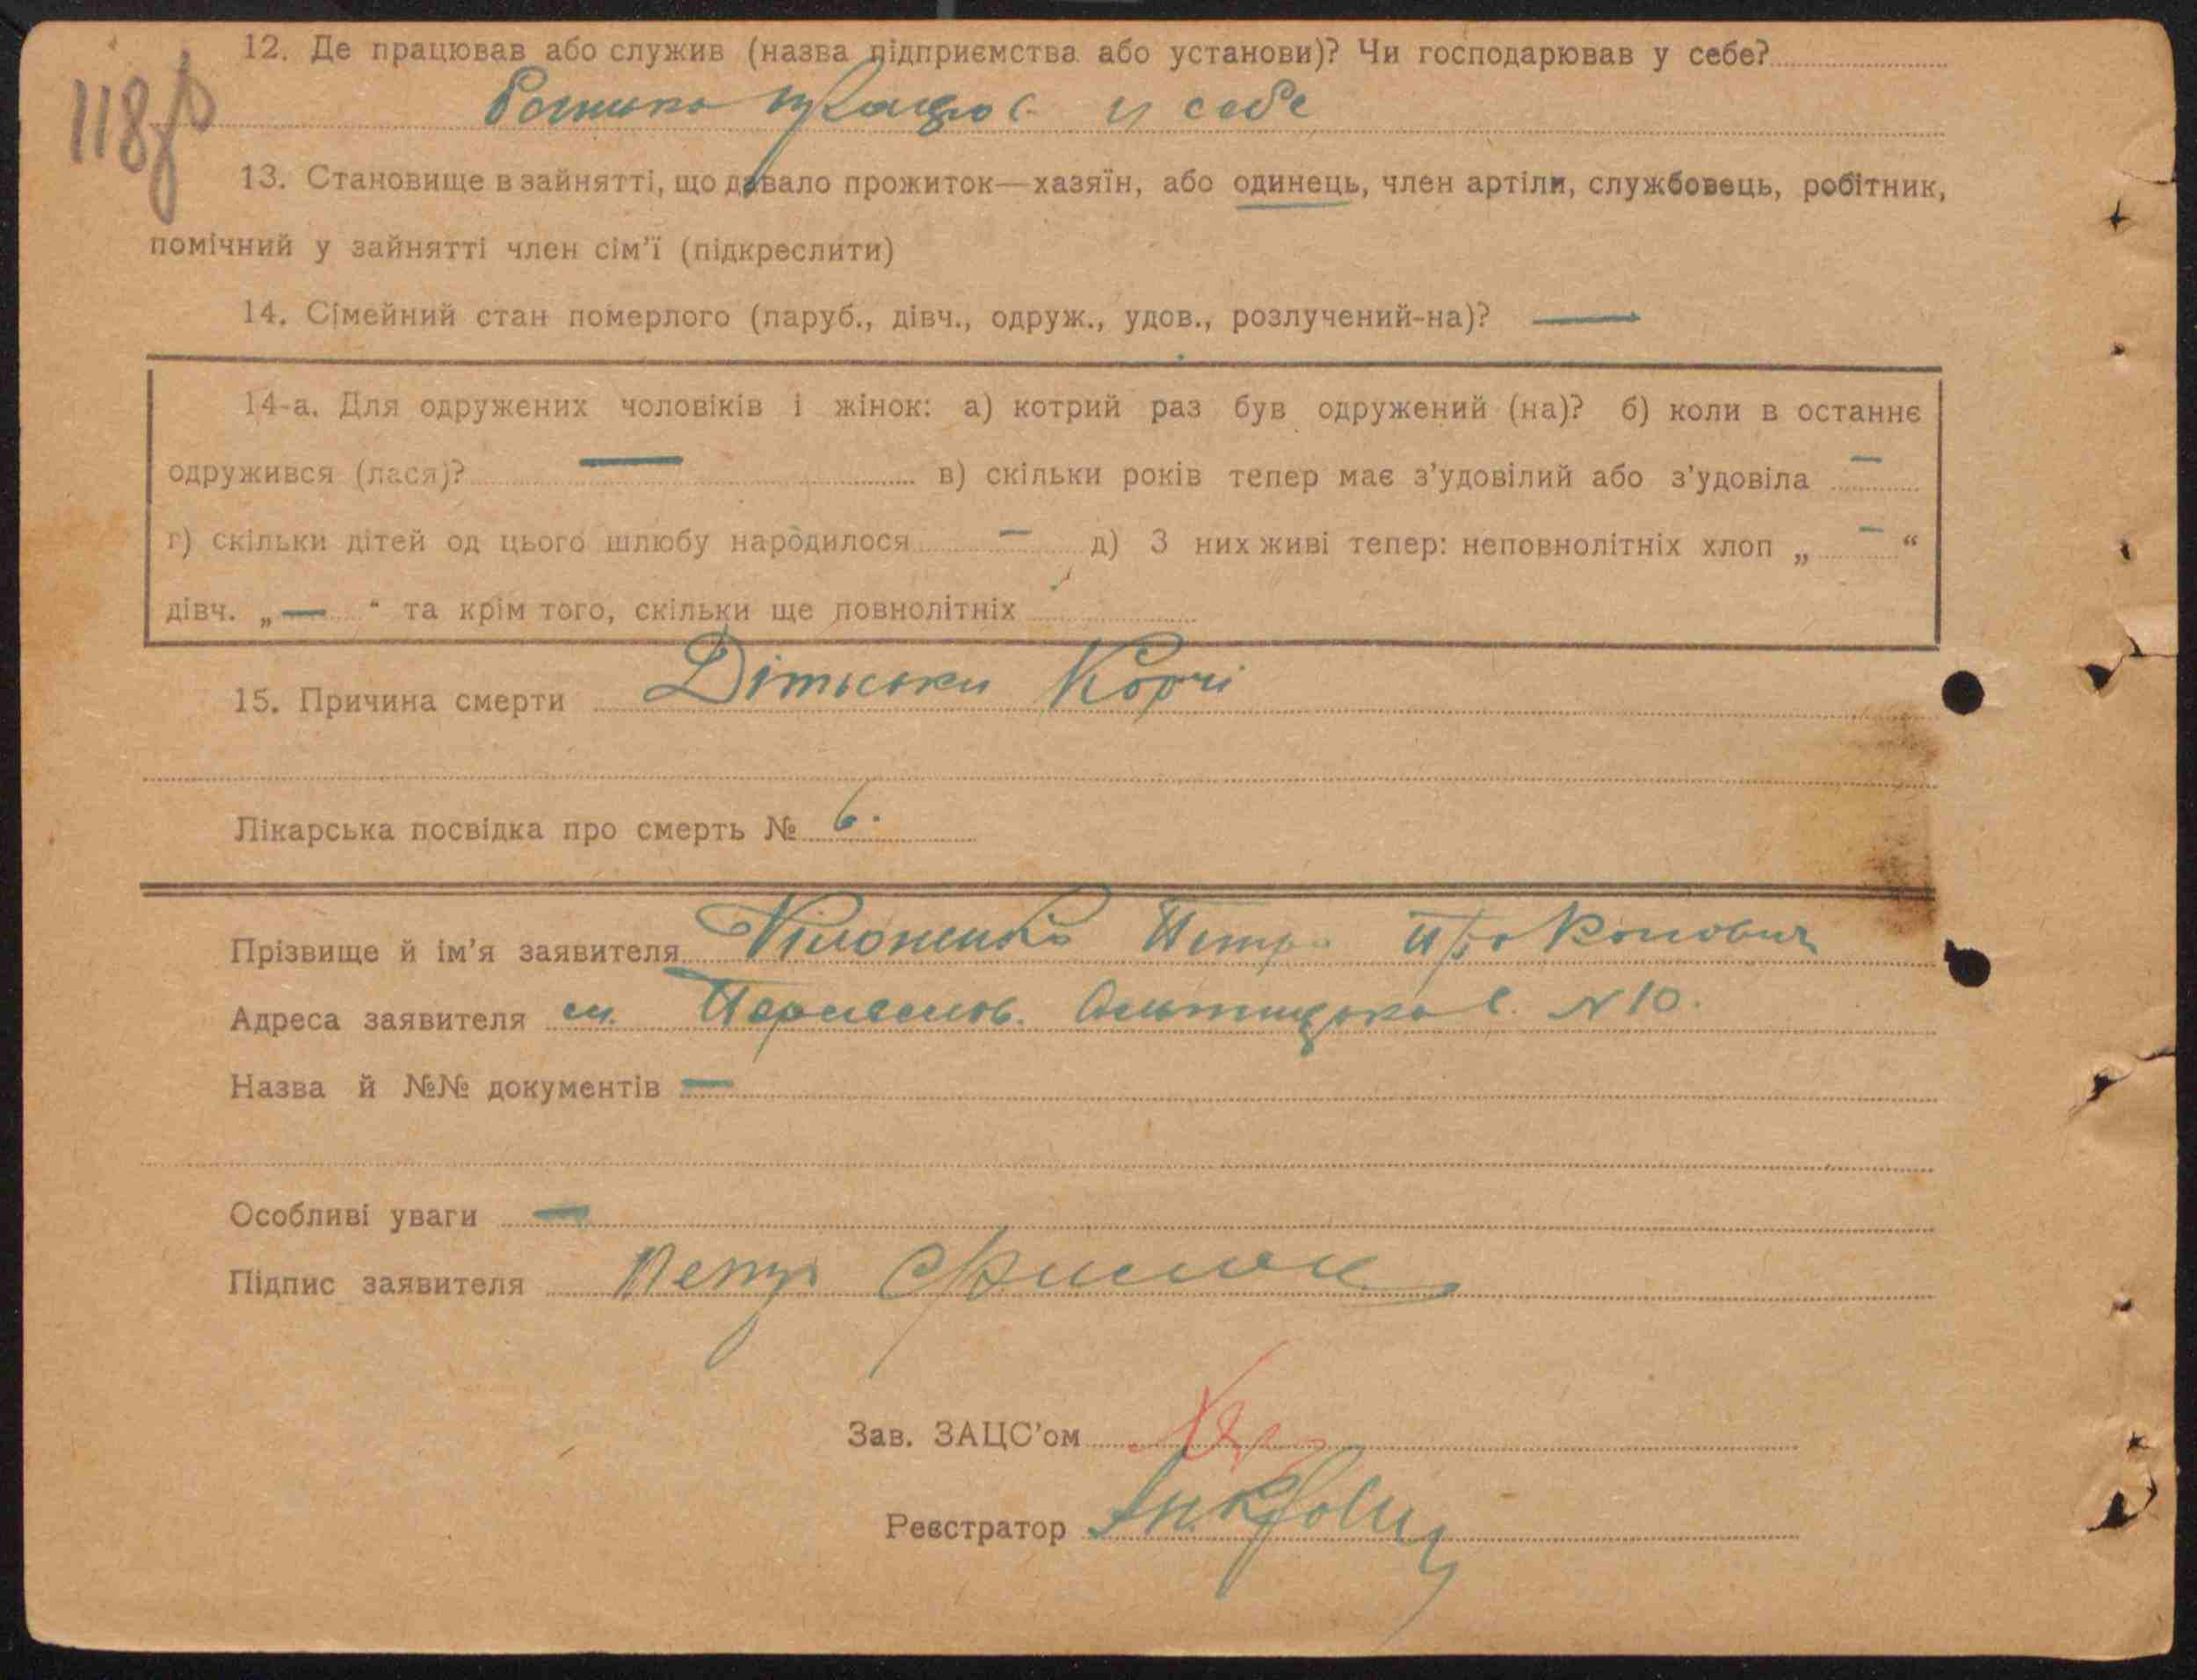 118
12. Де працював або служив (назва підприємства або установи)? Чи господарював у себе?
у себе
13. Становище в зайнятті, що давало прожиток—хазяїн, або одинець, член артіли, службовець, робітник,
помічний у зайнятті член сім'ї (підкреслити)
14. Сімейний стан померлого (паруб., дівч., одруж., удов., розлучений-на)? —
14-а. Для одружених чоловіків і жінок: а) котрий раз був одружений (на)? б) коли в останнє
одружився (лася)? — в) скільки років тепер має з'удовілий або з'удовіла —
г) скільки дітей од цього шлюбу народилося — д) З них живі тепер: неповнолітніх хлоп „ — “
дівч. „ — “ та крім того, скільки ще повнолітніх
15. Причина смерти Дітьски Корчі
Лікарська посвідка про смерть № 6.
Прізвище й ім'я заявителя Петро Прокопович
Адреса заявителя м. № 10.
Назва й №№ документів —
Особливі уваги —
Підпис заявителя Петр
Зав. ЗАЦС'ом
Реєстратор